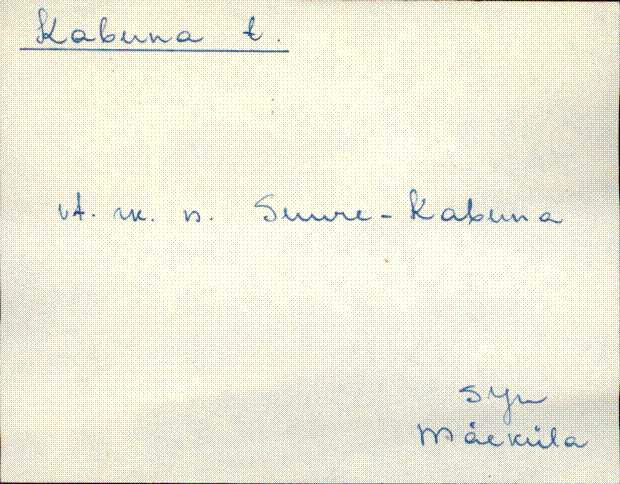 Kabuna t.
vt. m. n. Suure-Kabuna
Syn
Mäeküla